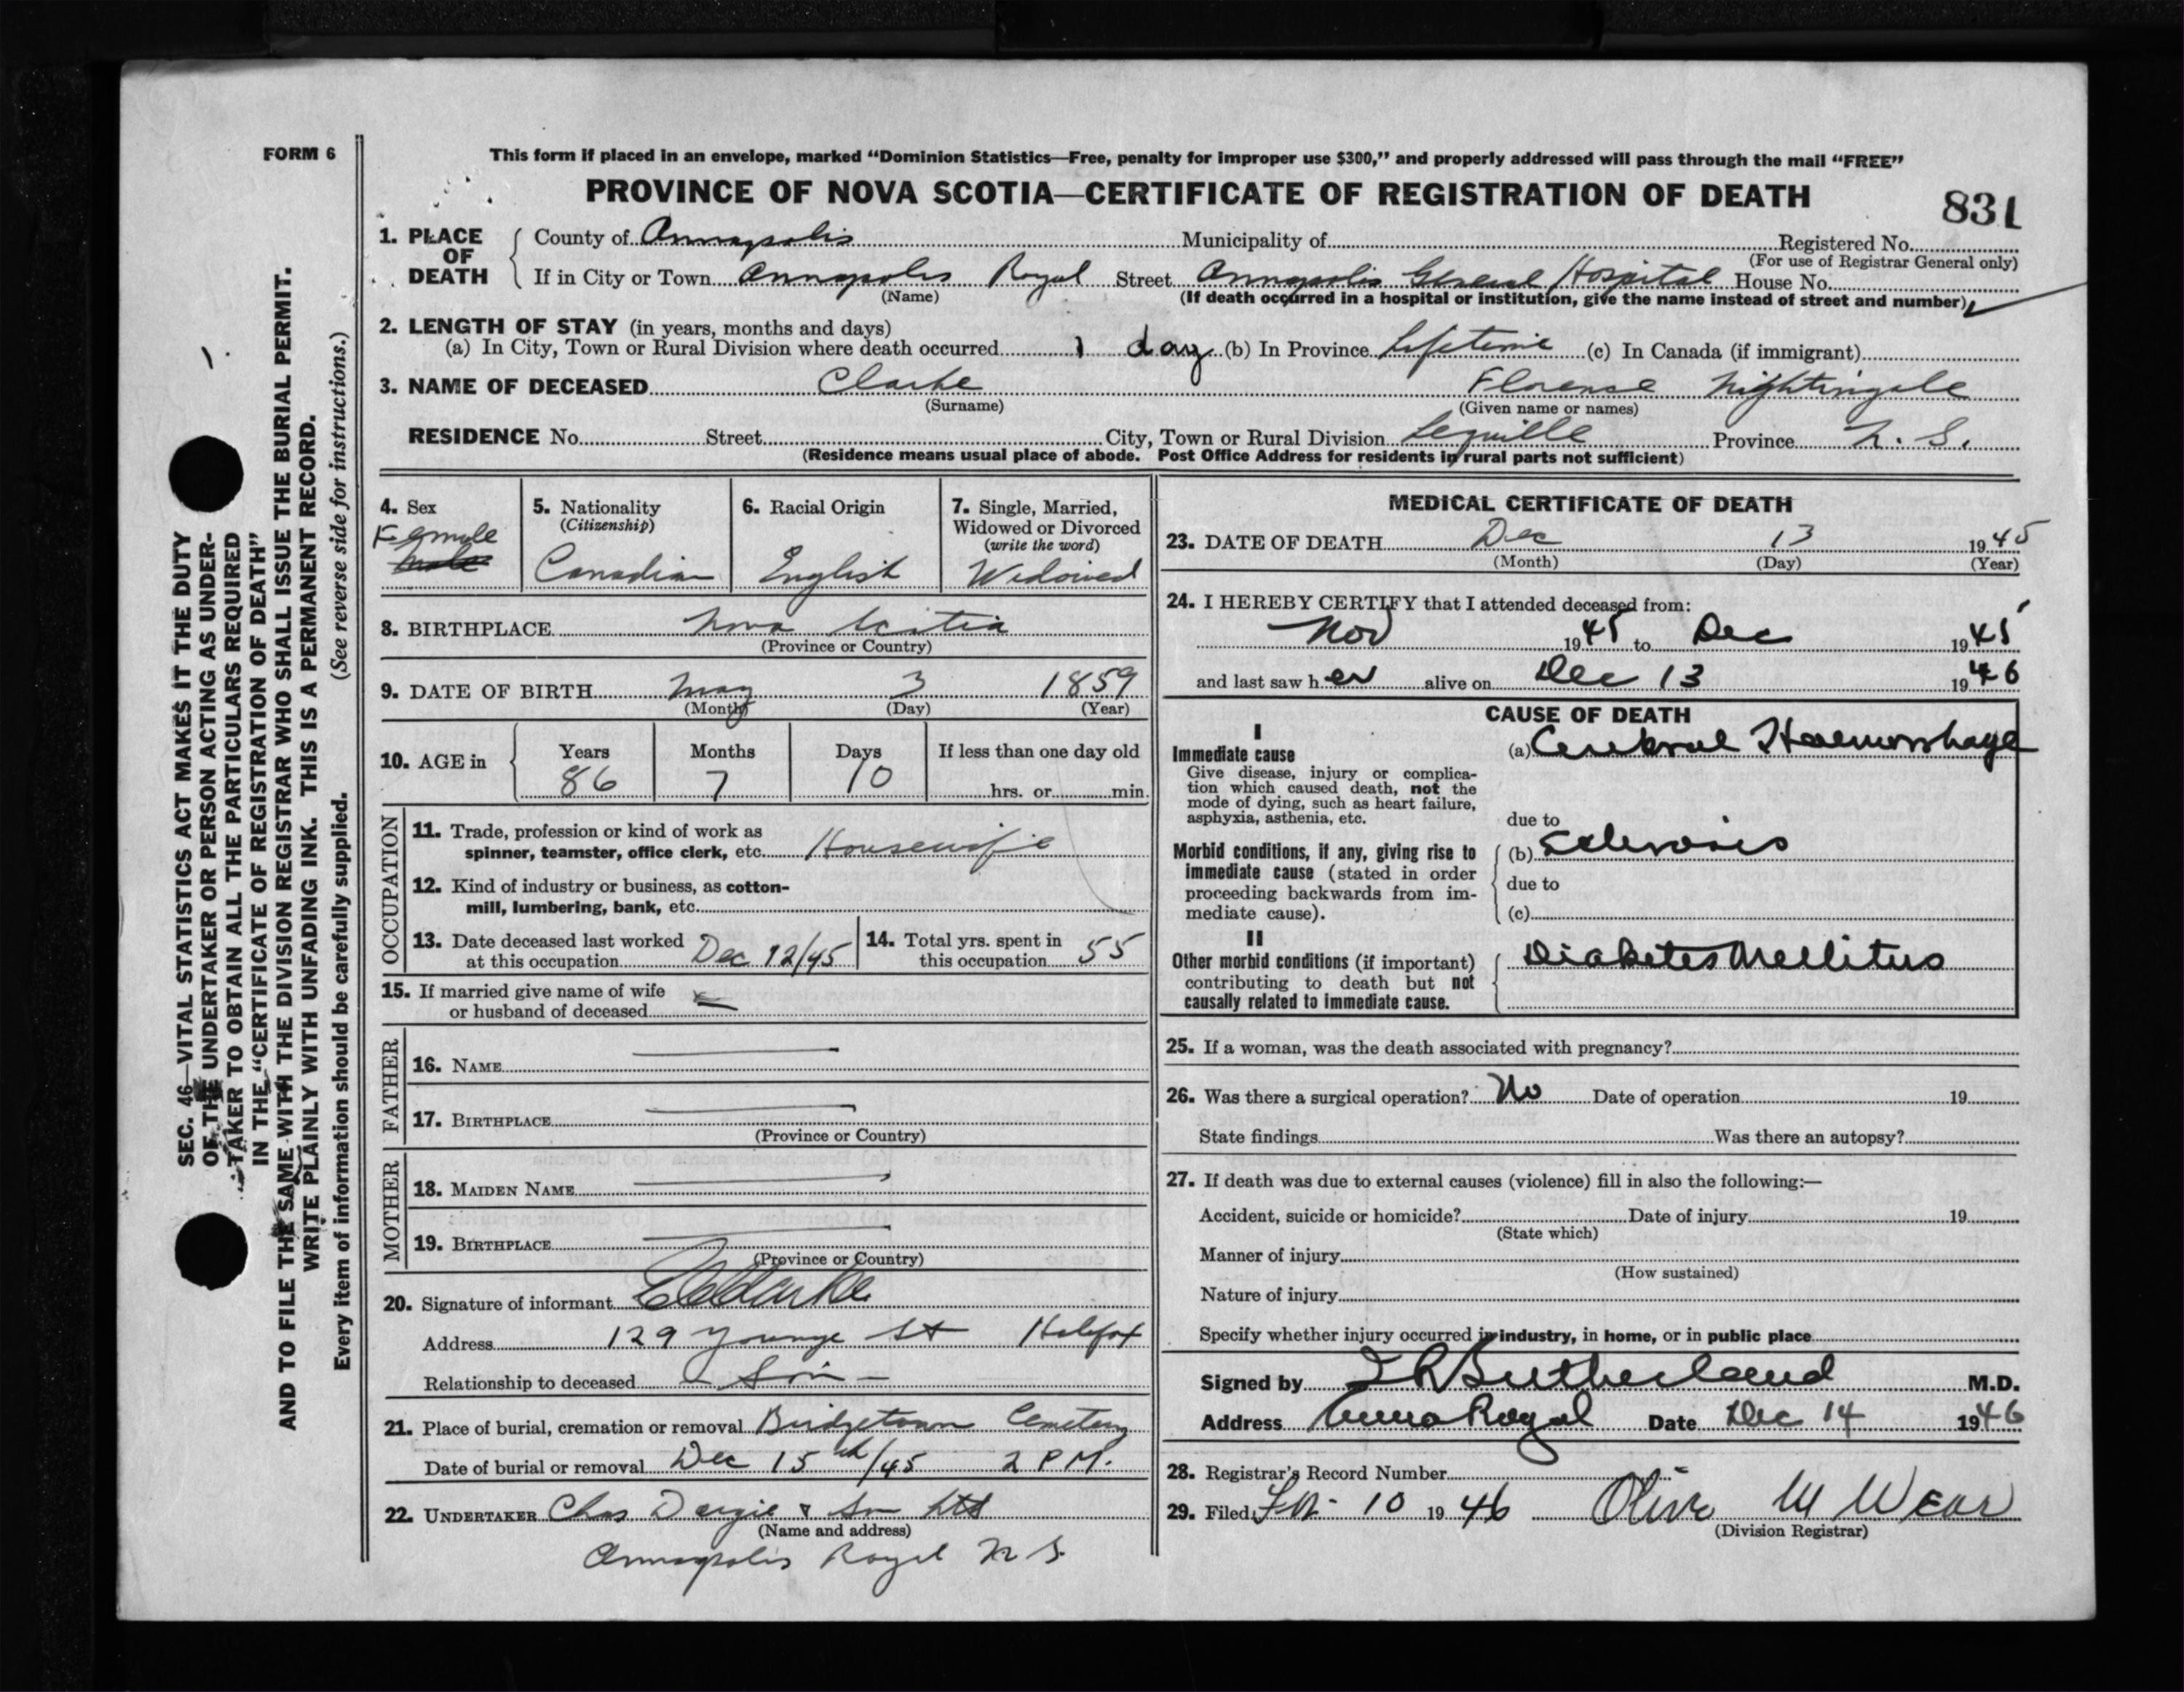 FORM 6
This form if placed in an envelope, marked “Dominion Statistics—Free, penalty for improper use $300,” and properly addressed will pass through the mail “FREE”
PROVINCE OF NOVA SCOTIA—CERTIFICATE OF REGISTRATION OF DEATH
831
1. PLACE OF DEATH
County of Annapolis Municipality of Registered No.
(For use of Registrar General only)
If in City or Town Annapolis Royal Street Annapolis General Hospital House No.
(Name) (If death occurred in a hospital or institution, give the name instead of street and number)
2. LENGTH OF STAY (in years, months and days)
(a) In City, Town or Rural Division where death occurred 1 day (b) In Province Lifetime (c) In Canada (if immigrant)
3. NAME OF DECEASED Clarke Florence Nightingale
(Surname) (Given name or names)
RESIDENCE No. Street City, Town or Rural Division Lequille Province N. S.
(Residence means usual place of abode. Post Office Address for residents in rural parts not sufficient)
4. Sex
Female
Male
5. Nationality
(Citizenship)
Canadian
6. Racial Origin
English
7. Single, Married,
Widowed or Divorced
(write the word)
Widowed
8. BIRTHPLACE Nova Scotia
(Province or Country)
9. DATE OF BIRTH May 3 1859
(Month) (Day) (Year)
10. AGE in
Years Months Days If less than one day old
86 7 10 hrs. or min.
OCCUPATION
11. Trade, profession or kind of work as
spinner, teamster, office clerk, etc. Housewife
12. Kind of industry or business, as cotton-
mill, lumbering, bank, etc.
13. Date deceased last worked
at this occupation Dec 12/45
14. Total yrs. spent in
this occupation 55
15. If married give name of wife
or husband of deceased
FATHER
16. NAME
17. BIRTHPLACE
(Province or Country)
MOTHER
18. MAIDEN NAME
19. BIRTHPLACE
(Province or Country)
20. Signature of informant Clarke
Address 129 Younge St Halifax
Relationship to deceased Son
21. Place of burial, cremation or removal Bridgetown Cemetery
Date of burial or removal Dec 15th/45 2 P.M.
22. UNDERTAKER Chas Dargie & Son Ltd
(Name and address)
Annapolis Royal N S.
MEDICAL CERTIFICATE OF DEATH
23. DATE OF DEATH Dec 13 1945
(Month) (Day) (Year)
24. I HEREBY CERTIFY that I attended deceased from:
Nov 1945 to Dec 1945
and last saw her alive on Dec 13 1946
CAUSE OF DEATH
I
Immediate cause
Give disease, injury or complica-
tion which caused death, not the
mode of dying, such as heart failure,
asphyxia, asthenia, etc.
(a) Cerebral Haemorrhage
due to
Morbid conditions, if any, giving rise to
immediate cause (stated in order
proceeding backwards from im-
mediate cause).
(b) Sclerosis
due to
(c)
II
Other morbid conditions (if important)
contributing to death but not
causally related to immediate cause.
Diabetes Mellitus
25. If a woman, was the death associated with pregnancy?
26. Was there a surgical operation? No Date of operation 19
State findings Was there an autopsy?
27. If death was due to external causes (violence) fill in also the following:—
Accident, suicide or homicide? Date of injury 19
(State which)
Manner of injury
(How sustained)
Nature of injury
Specify whether injury occurred in industry, in home, or in public place
Signed by Sutherland M.D.
Address Anna Royal Date Dec 14 1946
28. Registrar's Record Number
29. Filed 10 1946 Olive M Wear
(Division Registrar)
SEC. 46—VITAL STATISTICS ACT MAKES IT THE DUTY
OF THE UNDERTAKER OR PERSON ACTING AS UNDER-
TAKER TO OBTAIN ALL THE PARTICULARS REQUIRED
IN THE “CERTIFICATE OF REGISTRATION OF DEATH”
AND TO FILE THE SAME WITH THE DIVISION REGISTRAR WHO SHALL ISSUE THE BURIAL PERMIT.
WRITE PLAINLY WITH UNFADING INK. THIS IS A PERMANENT RECORD.
Every item of information should be carefully supplied. (See reverse side for instructions.)